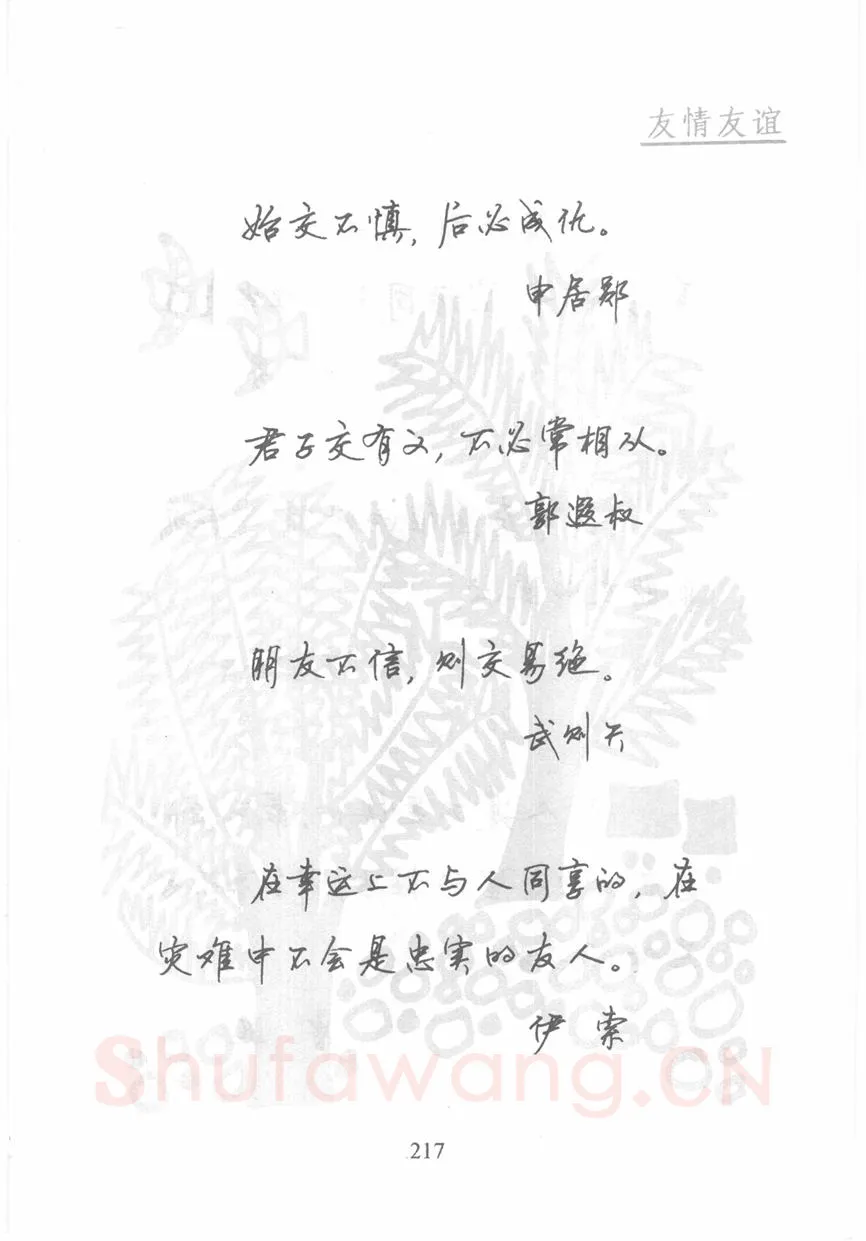 友情友谊
始交不慎，后必成仇。
申居郧
君子交有义，不必常相从。
郭遐叔
朋友不信，则交易绝。
武则天
在幸运上不与人同享的，在
灾难中不会是忠实的友人。
伊索
Shufawang.CN
217